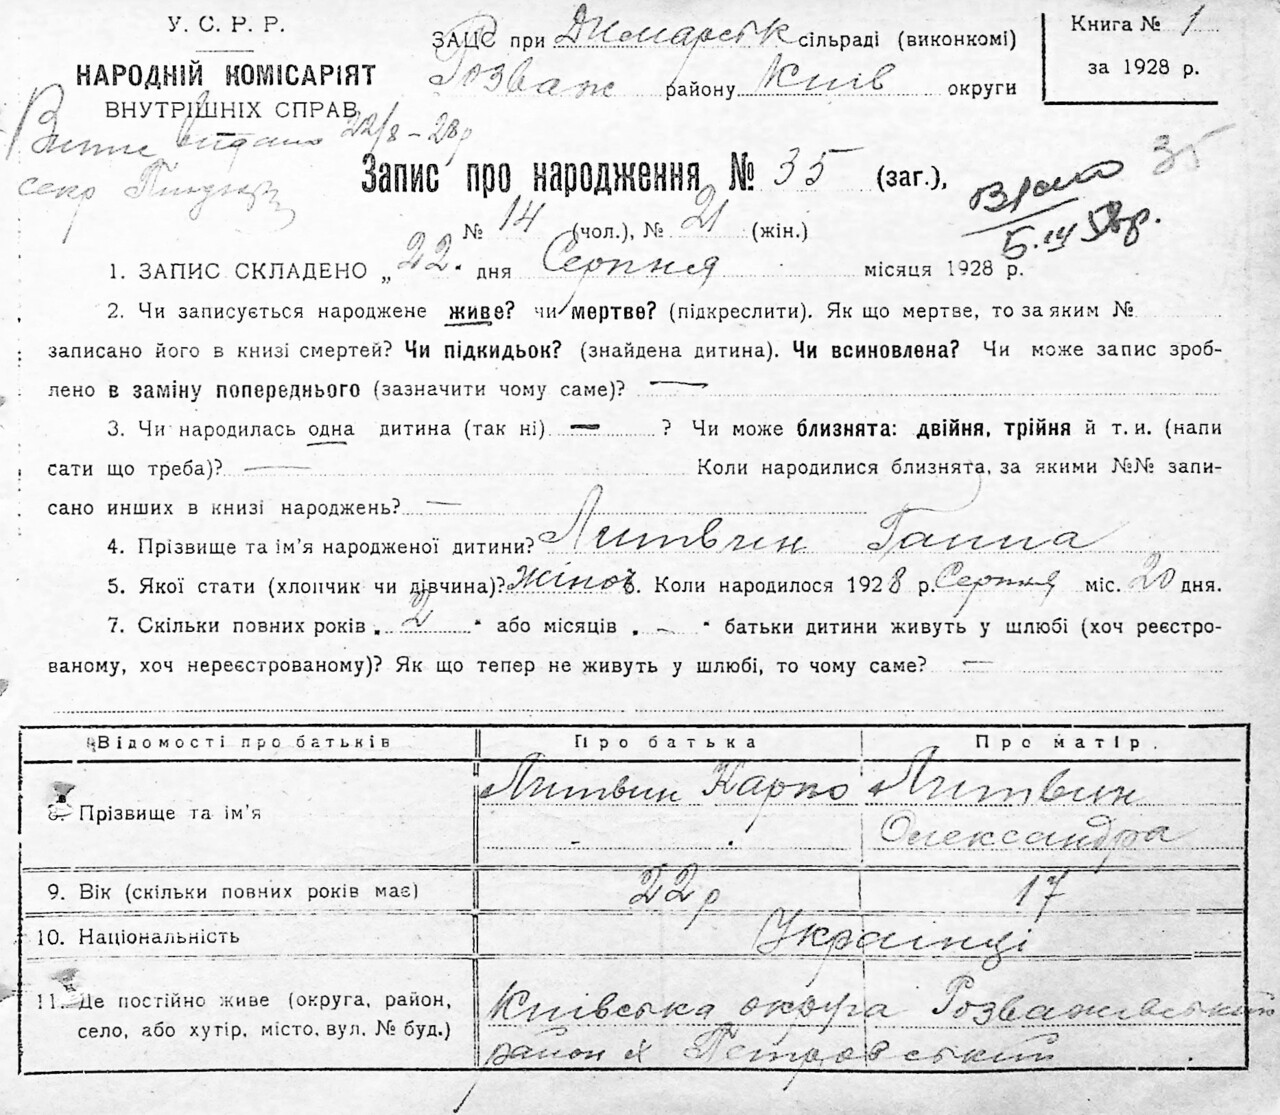 У. С. Р. Р.
НАРОДНІЙ КОМІСАРІЯТ
ВНУТРІШНІХ СПРАВ
ЗАЦС при Димарськ сільраді (виконкомі)
Розваж району Київ округи
Книга № 1
за 1928 р.
видано 22/8-28р
секр
Запис про народження № 35 (заг.),
35
№ 14 (чол.), № 21 (жін.)
5.IV 58р.
1. ЗАПИС СКЛАДЕНО „22" дня Серпня місяця 1928 р.
2. Чи записується народжене живе? чи мертве? (підкреслити). Як що мертве, то за яким №
записано його в книзі смертей? Чи підкидьок? (знайдена дитина). Чи всиновлена? Чи може запис зроб-
лено в заміну попереднього (зазначити чому саме)? —
3. Чи народилась одна дитина (так ні) — ? Чи може близнята: двійня, трійня й т. и. (напи
сати що треба)? — Коли народилися близнята, за якими №№ запи-
сано инших в книзі народжень? —
4. Прізвище та ім'я народженої дитини? Литвин Ганна
5. Якої стати (хлопчик чи дівчина)? Жіноч. Коли народилося 1928 р. Серпня міс. 20 дня.
7. Скільки повних років „ 2 " або місяців „ - " батьки дитини живуть у шлюбі (хоч реєстро-
ваному, хоч нереєстрованому)? Як що тепер не живуть у шлюбі, то чому саме? —
Відомості про батьків Про батька Про матір.
8. Прізвище та ім'я Литвин Карпо Литвин
Олександра
9. Вік (скільки повних років має) 22р 17
10. Національність Українці
11. Де постійно живе (округа, район, Київська округа Розважівський
село, або хутір, місто, вул. № буд.) район х Петровський